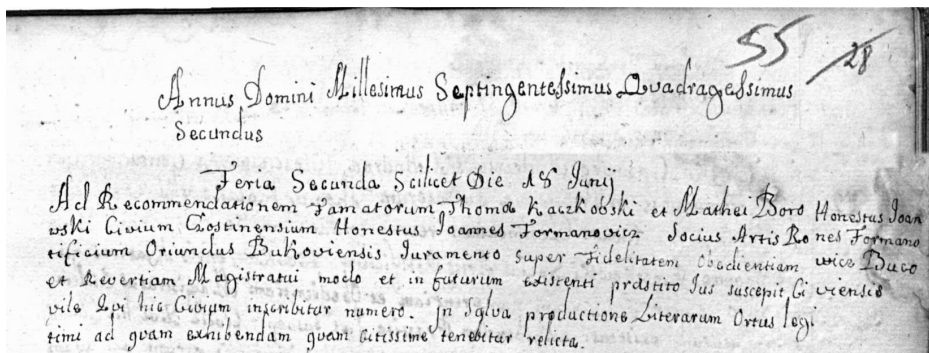 55 28
Annus Domini Millesimus Septingentessimus Quadragessimus
Secundus
Feria Secunda Scilicet Die 18 Junij
Ad Recommendationem Famatorum Thomæ Kaczkobski et Mathei Boro
wski Civium Gostinensium Honestus Joannes Formanovicz Socius Artis Ro
tificium Oriundus Bukoviensis Juramento super Fidelitatem Obedientiam
et Revertiam Magistratui moclo et in futurum existenti præstito Jus suscepit Ci
vile Qvi hic Civium inscribitur numero. In Salva productione Literarum Ortus legi
timi ad qvam exhibendam qvam citissime tenebitur relicta.
Honestus Joan
nes Formano
wicz Buco
viensis